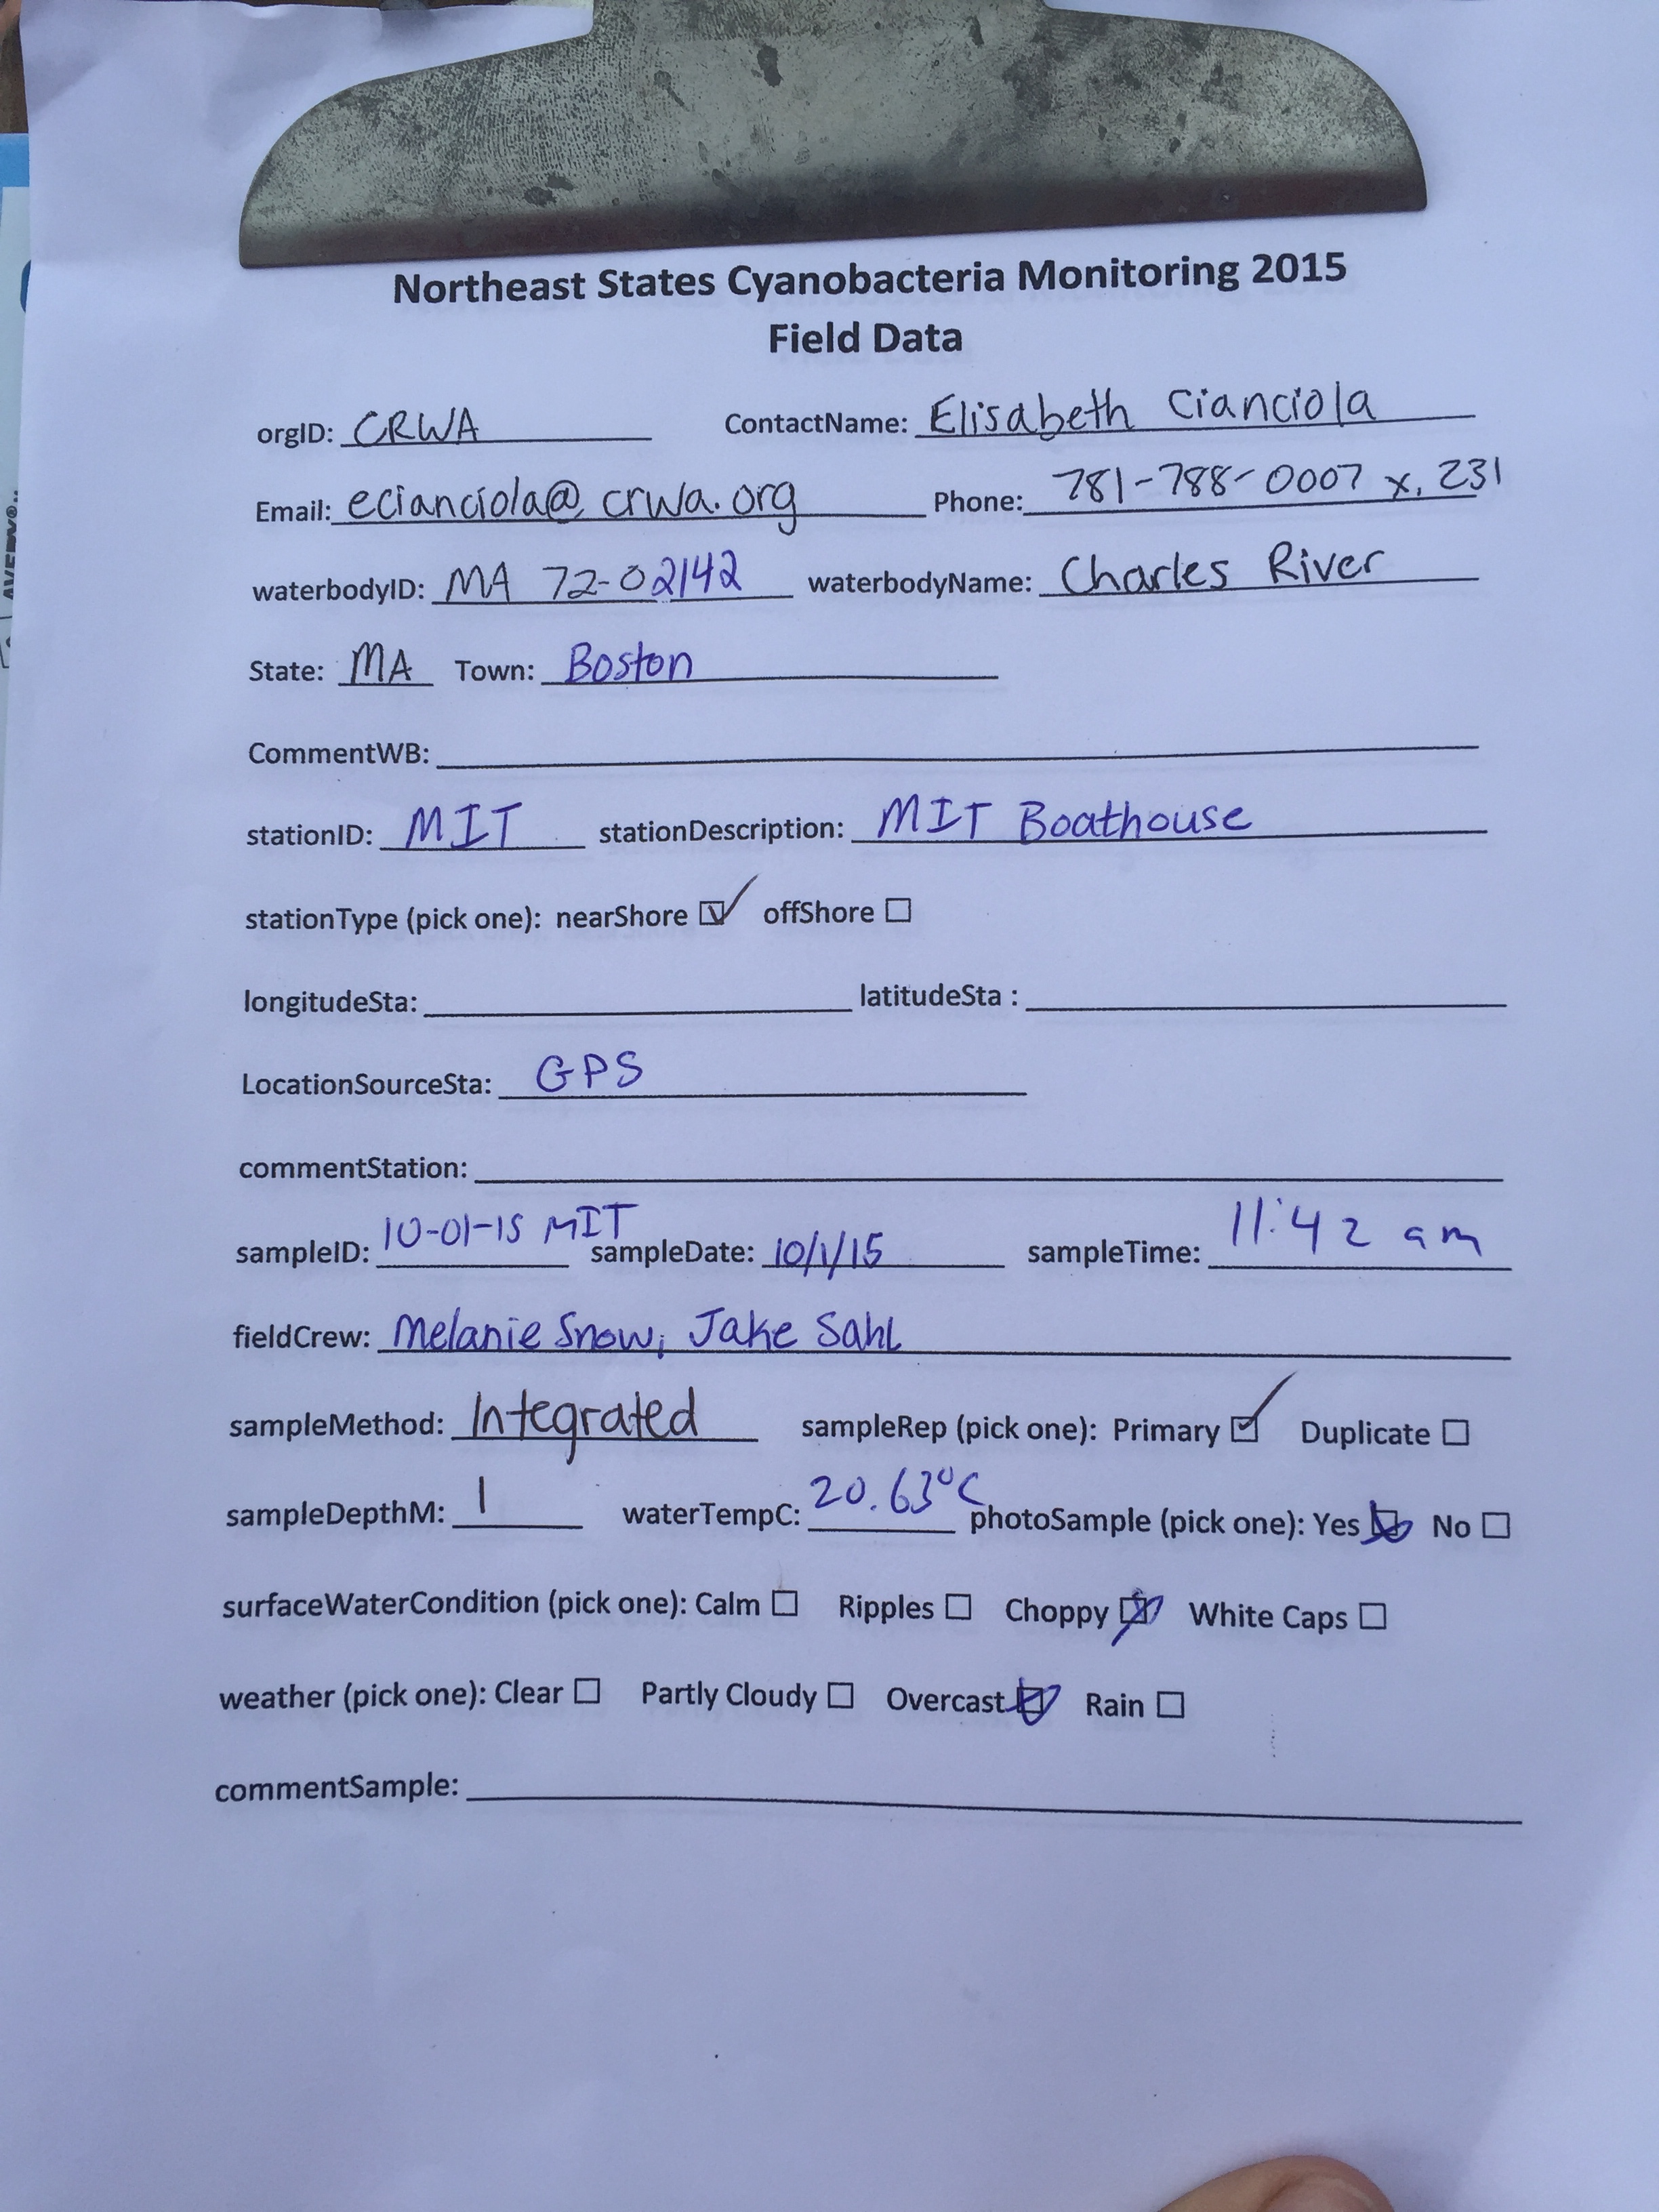 Northeast States Cyanobacteria Monitoring 2015
Field Data
orgID: CRWA ContactName: Elisabeth Cianciola
Email: ecianciola@crwa.org Phone: 781-788-0007 x. 231
waterbodyID: MA 72-02142 waterbodyName: Charles River
State: MA Town: Boston
CommentWB:
stationID: MIT stationDescription: MIT Boathouse
stationType (pick one): nearShore ☑ offShore ☐
longitudeSta: latitudeSta :
LocationSourceSta: GPS
commentStation:
sampleID: 10-01-15 MIT sampleDate: 10/1/15 sampleTime: 11:42 am
fieldCrew: Melanie Snow, Jake Sahl
sampleMethod: Integrated sampleRep (pick one): Primary ☑ Duplicate ☐
sampleDepthM: 1 waterTempC: 20.63°C photoSample (pick one): Yes ☑ No ☐
surfaceWaterCondition (pick one): Calm ☐ Ripples ☐ Choppy ☑ White Caps ☐
weather (pick one): Clear ☐ Partly Cloudy ☐ Overcast ☑ Rain ☐
commentSample:
AVERY®